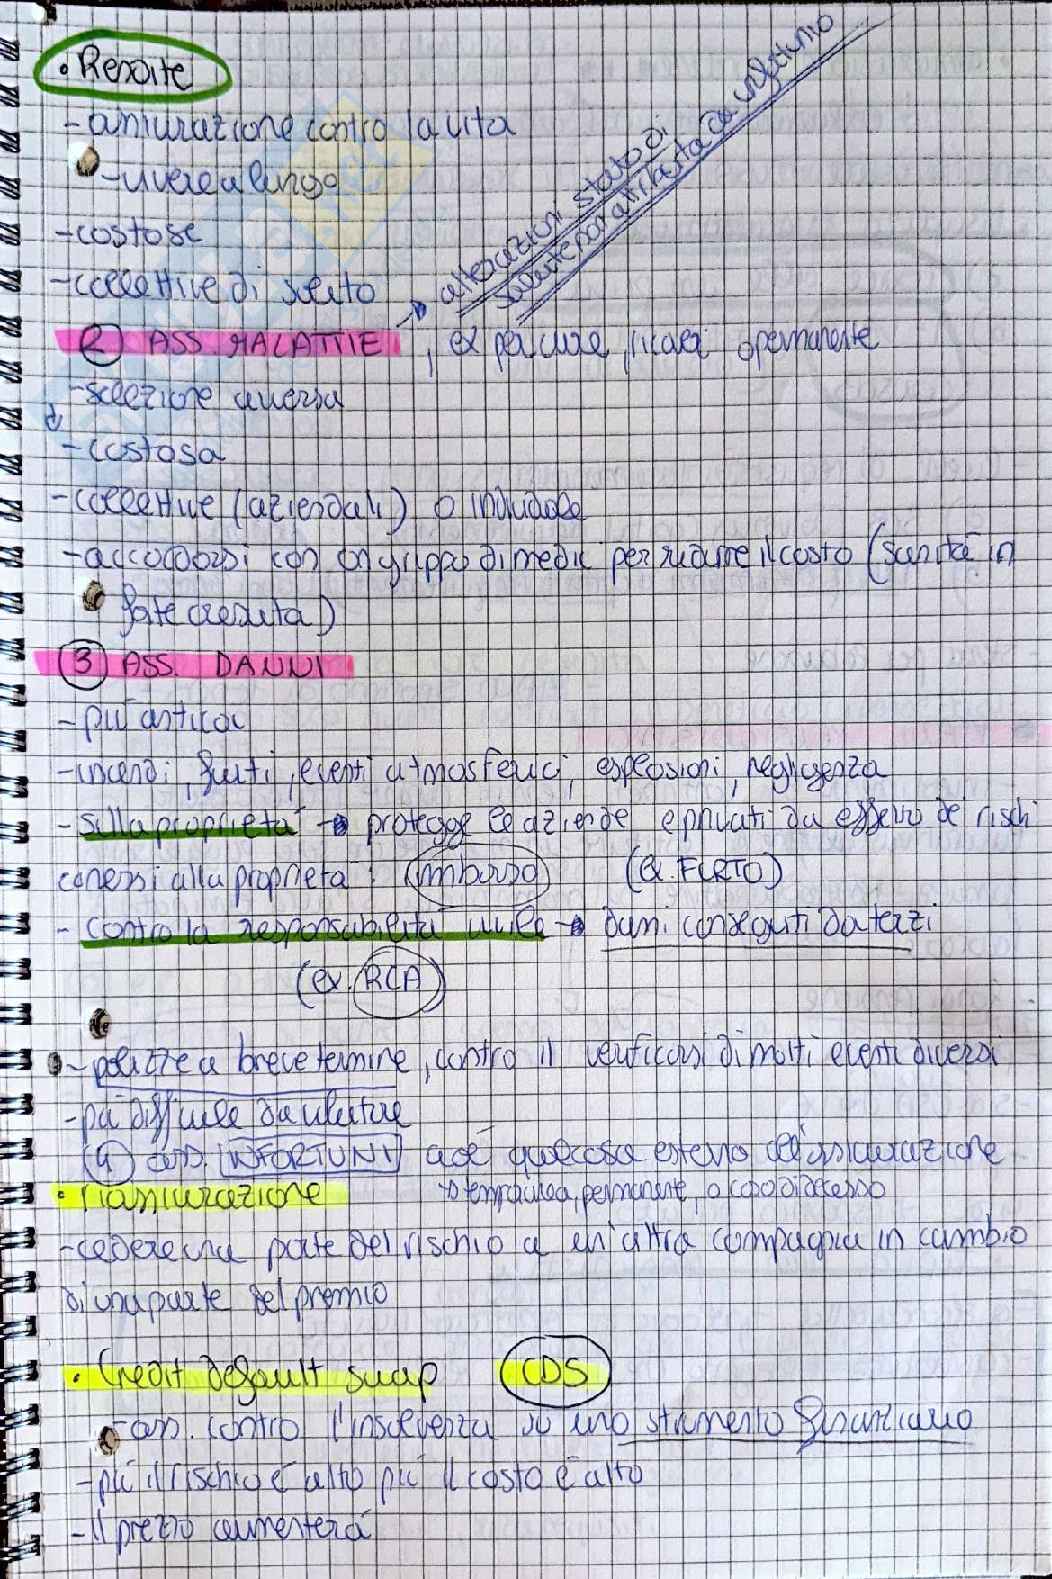 • Rendite
- assicurazione contro la vita
- vivere a lungo
- costose
- collettive di scerto
→ alterazioni stato di
salute non attribuita da infortunio
② ASS. MALATTIE , ex per cure, ricoveri o permanente
- selezione avversa
↓
- costosa
- collettive (aziendali) o individuale
- accordarsi con un gruppo di medic per ridurre il costo (sanità in
③ ASS. DANNI
- più antica
- incendi, furti, eventi atmosferici, esplosioni, negligenza
- sulla proprietà → protegge le aziende e privati da essere de rischi
conessi alla proprietà : (rimborso) (ex. FURTO)
- contro la responsabilità civile → danni conseguiti da terzi
(ex. RCA)
- polizze a breve termine, contro il verificarsi di molti eventi diversi
- più difficile da valutare
(a) ass. INFORTUNI cioè qualcosa esterno dell'assicurazione
• riassicurazione → temporanea, permanente, o capo di decesso
- cedere una parte del rischio a un'altra compagnia in cambio
di una parte del premio
• Credit default swap CDS
- ass. contro l'insolvenza su uno strumento finanziario
- più il rischio è alto più il costo è alto
- il prezzo aumenterà